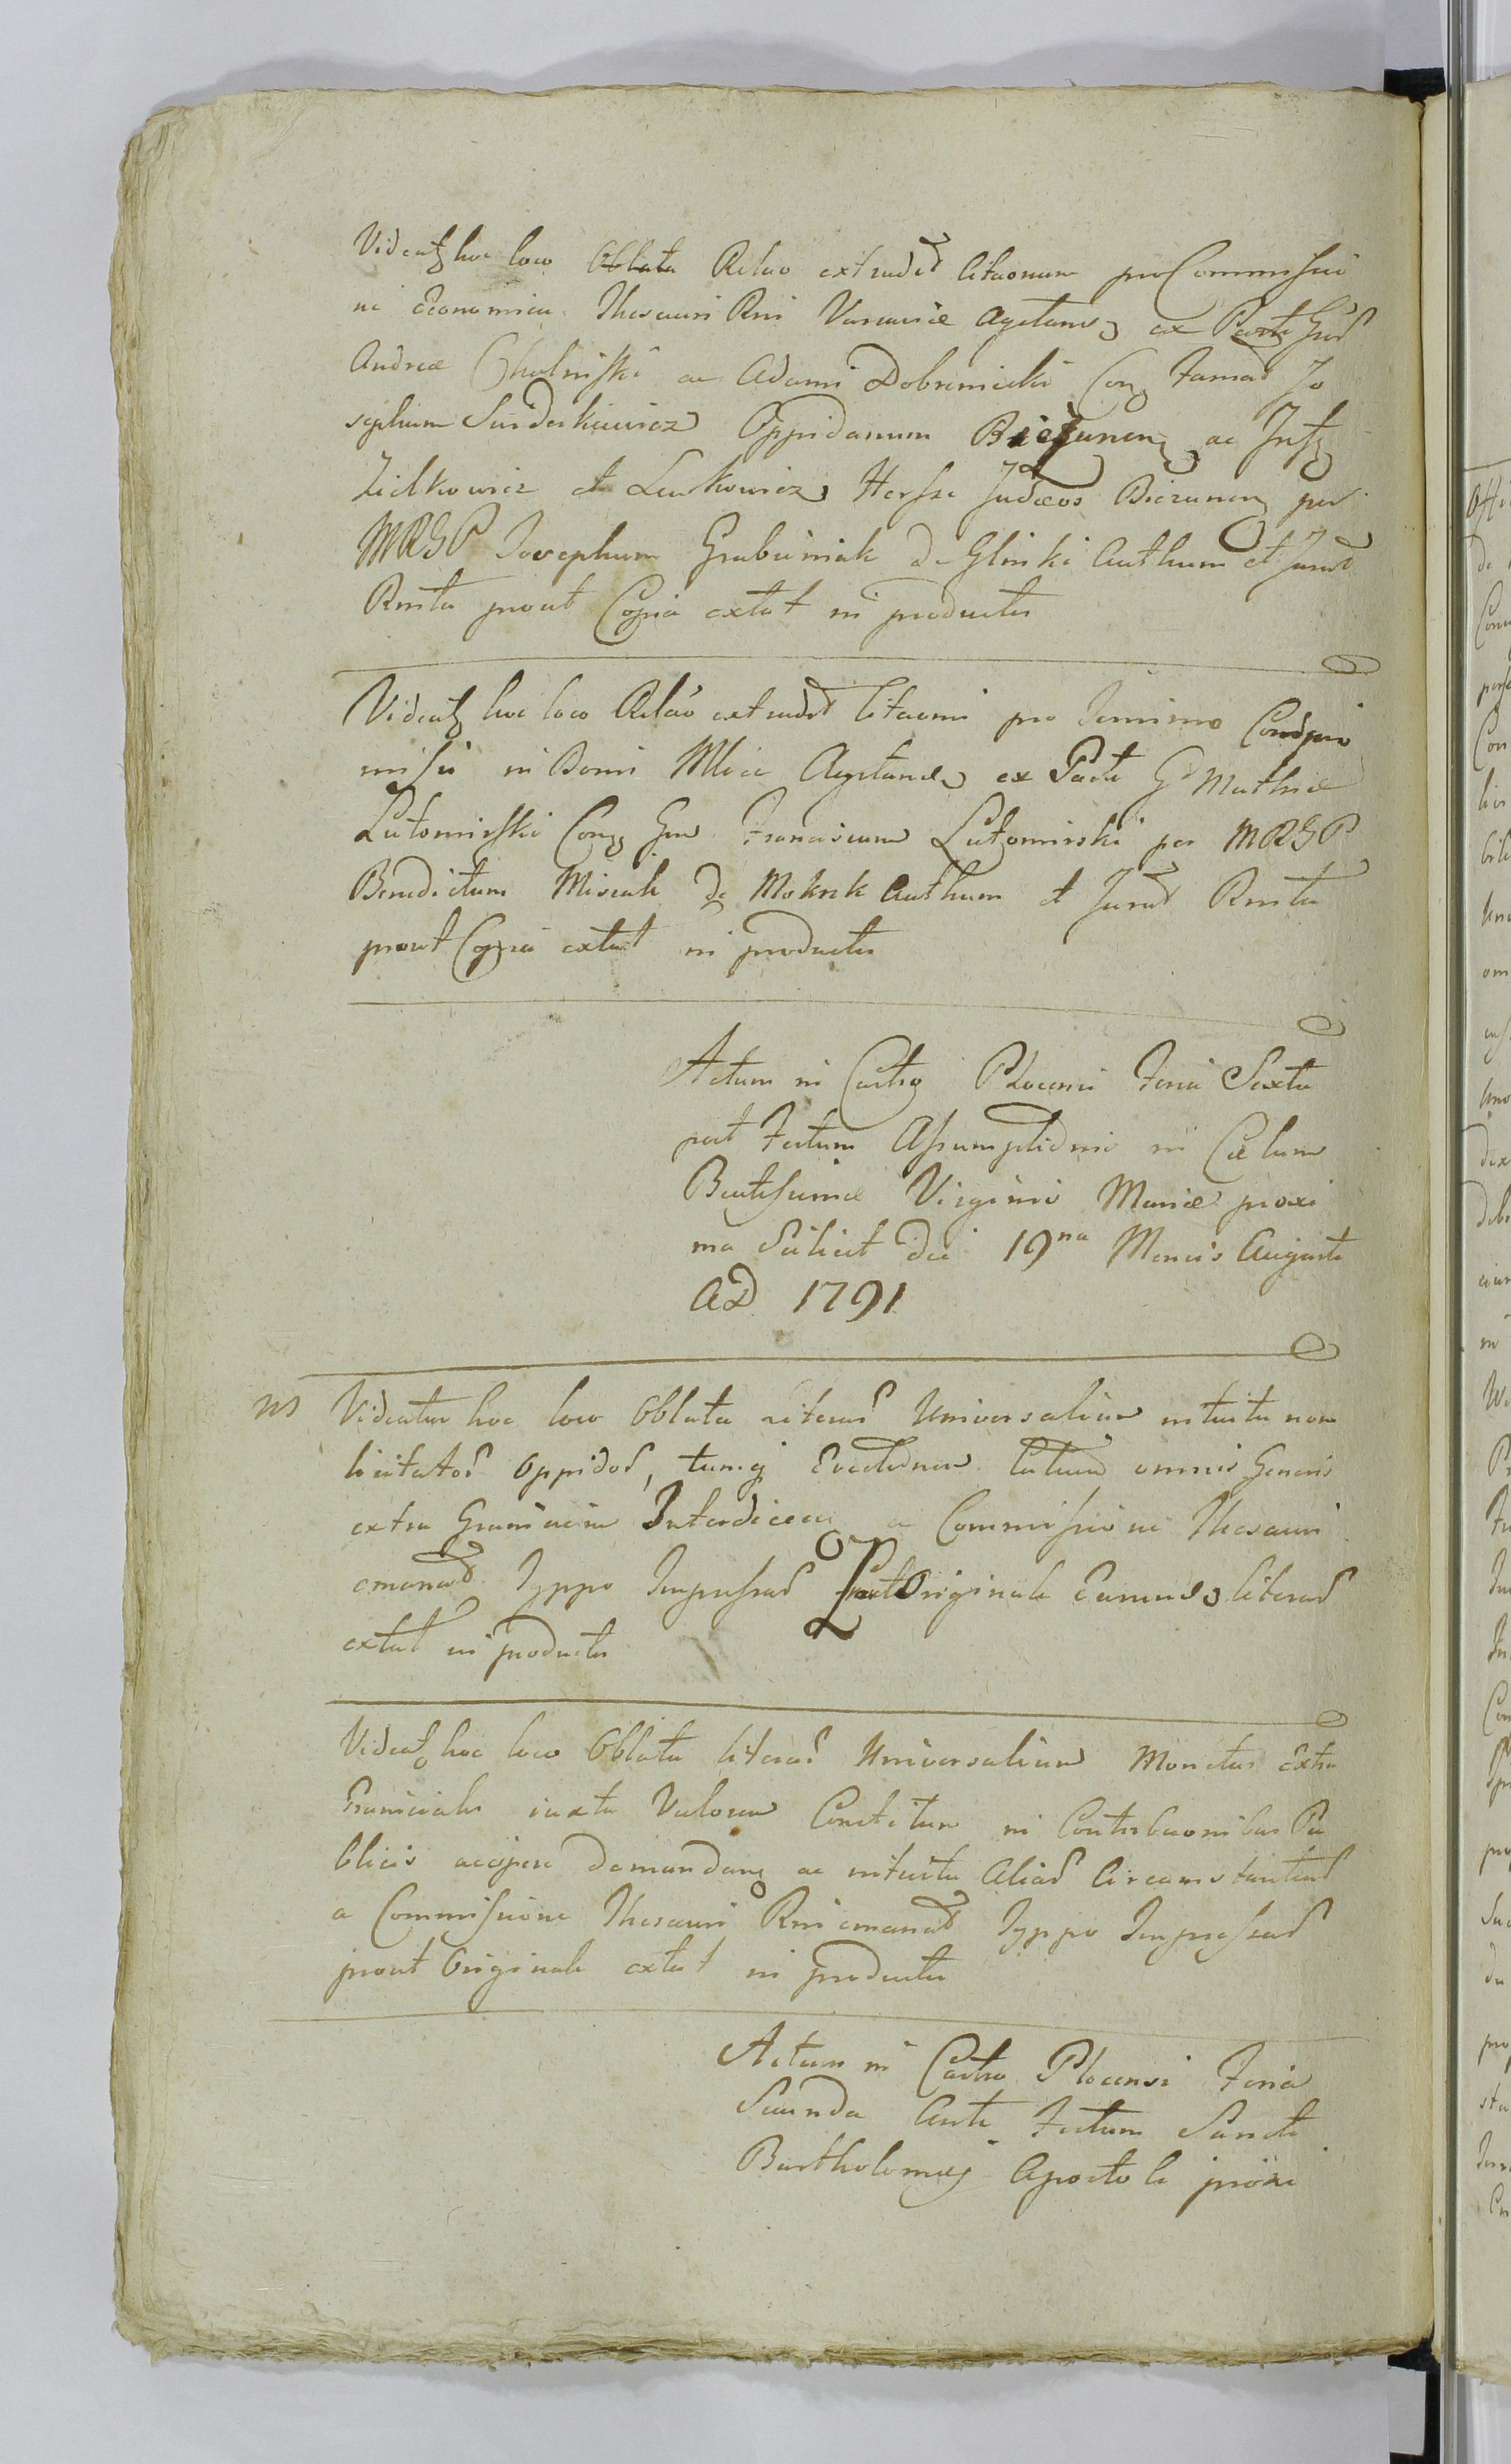 Videatz hoc loco Oblata Relao extradit Citaonum pro Commissio
ni Economica Thesauri Rni Varsaviæ Agitanz ex Parte Grd
Andreæ Chelmisski ac Adami Dobrzenicki Conz Famat Jo
sephum Surderkiewicz Oppidanum Biezunenz ac Infz
Zielkowicz et Lewkowicz Hersze Judæos Biezunenz per
MRGP Josephum Grabiiniak de Glinki Authum et Jurat
Rnita prout Copia extat in productis
Videatz hoc loco Relao extradit Citaonis pro Termino Compro
missi in Bonis Mlice Agitandz ex Parte G Mathiæ
Lutomirski Conz Gen Franciscum Lutomirski per MRGP
Benedictum Misiak de Mokrk Authum et Jurat Rnita
prout Copia extat in productis
Actum in Castro Plocensi Feria Sexta
post Festum Assumptionis in Cælum
Beatissimæ Virginis Mariæ proxi
ma Scilicet die 19na Mensis Augusti
AD 1791
NS Videatur hoc loco Oblata Literar Universalium intuitu non
licitator Oppidor, tumq Evectionem omnis Generis
extra Graniciem Interdicen a Commissione Thesauri
emanat Typpo Impressar prout Originale Earundz literar
extat in productis
Videatz hoc loco Oblata literar Universalium Monetas Extra
Graniciales iuxta Valorem Constitum in Contribuonibus Pu
blicis accipere demandanz ac intuitu Aliar Circumstantiar
a Commissione Thesauri Rni emanat Typpo Impressar
prout Originale extat in productis
Actum in Castro Plocensi Feria
Secunda Ante Festum Sancti
Bartholomæj Apostoli proxi